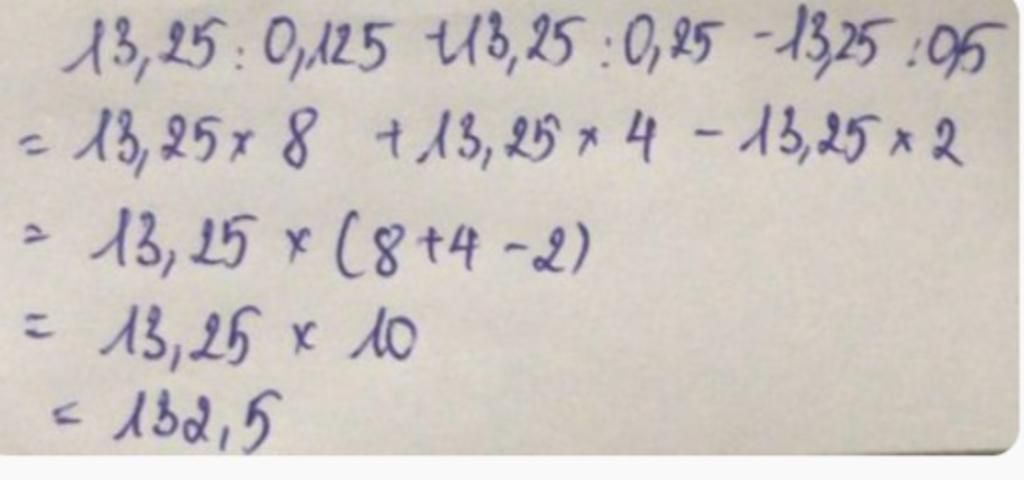 13,25 : 0,125 + 13,25 : 0,25 - 13,25 : 0,5
= 13,25 × 8 + 13,25 × 4 - 13,25 × 2
= 13,25 × (8 + 4 - 2)
= 13,25 × 10
= 132,5